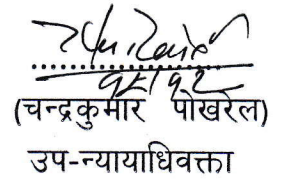 (चन्द्रकुमार पोखरेल)
उप-न्यायाधिवक्ता